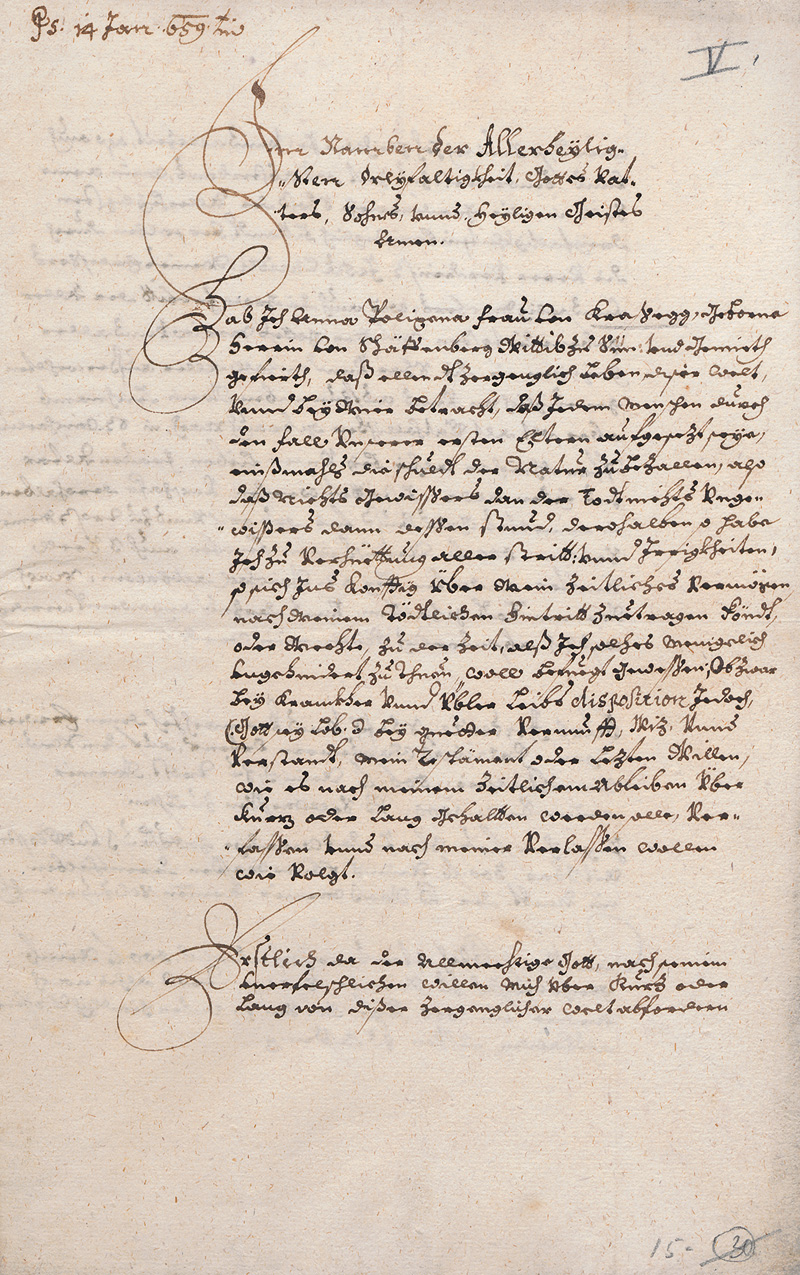 Ps. 14 Jan. 659
V.
Im Namben der Allerheylig-
„sten Dryfaltigkheit, Gottes Vat-
ters, Sohns, vnnd Heyligen Geistes
Amen.
Hab Ich Anna Polixena Frau von Kra Geborne
Herrin von Schäffenberg Wittib zu vnd Gemieth
gefierth, daß ellendt zergenglich Leben diser Welt,
Vnnd bey Mier betracht, daß Jedem Menschen durch
den fall Vnserer ersten Eltern aufgesezt seye,
einßmahls die schuldt der Natur zu bezallen, also
daß Nichts Gewissers dan der Todt nichts Unge-
„wißers dann dessen stund, derohalben so habe
Ich zu Verhüettung aller stritt: vnnd Irrigkheiten,
so sich Ins Konfftig Über Mein zeitliches Vermögen,
nach Meinem Tödtlichen Hintritt zuetragen Köndt,
oder Mechte, zu der Zeit, alß Ich solhes Menigelich
Vngehindert zu Thuen, woll befuegt Gewessen, Obzwar
bey Krankher Vnnd Übler Leibs disposition Jedoch,
(Gott sey Lob.) bey gueter Vernunfft, Wiz, Vnnd
Verstandt, mein Testament oder Lezten Willen,
wie es nach meinem Zeitlichem Ableiben Über
Kurz oder Lang Gehalten werden solle, Ver-
„fassen vnnd nach meiner Verlassen wollen
wie Volgt.
Erstlich da der Allmechtige Gott, nach seinem
Vnerfelschlichen Willen Mich Über Kurtz oder
Lang von dißer zergenglicher Welt abfordern
15- 30